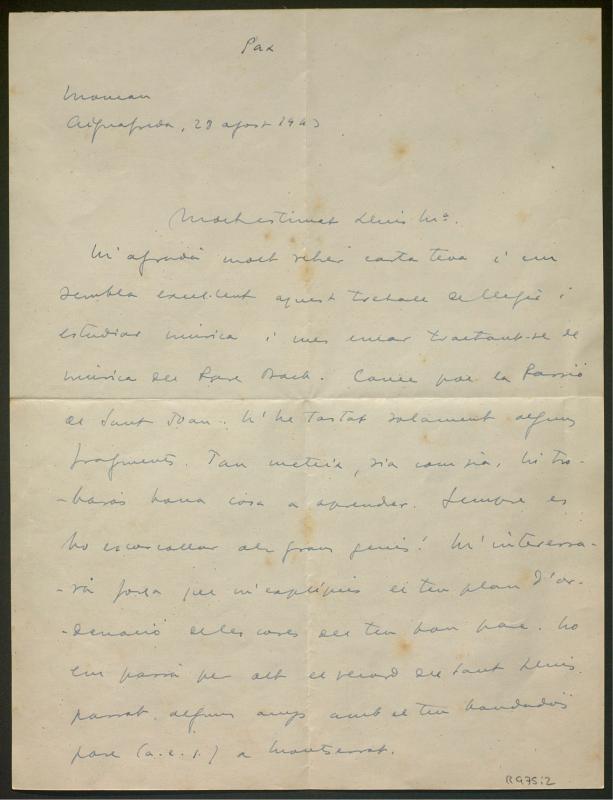 Pax
Aiguafreda, 29 agost 1943
Molt estimat Lluis Mª.
M'agradà molt rebre carta teva i em
sembla excel·lent aquest treball de llegir i
estudiar música i més encar tractant-se de
música del Pare Bach. Conec poc la Passió
de Sant Joan. N'he tastat solament alguns
fragments. Tan mateix, sia com sia, hi tro-
-baràs bona cosa a aprendre. Sempre es
bo escorcollar els grans genis! M'interessa-
-rà força que m'expliquis el teu plan d'or-
-denació de les coses del teu bon pare. No
em passà per alt el record del Sant Lluis
passat, alguns anys amb el teu bondadós
pare (a.c.s.) a Montserrat.
R 975:2